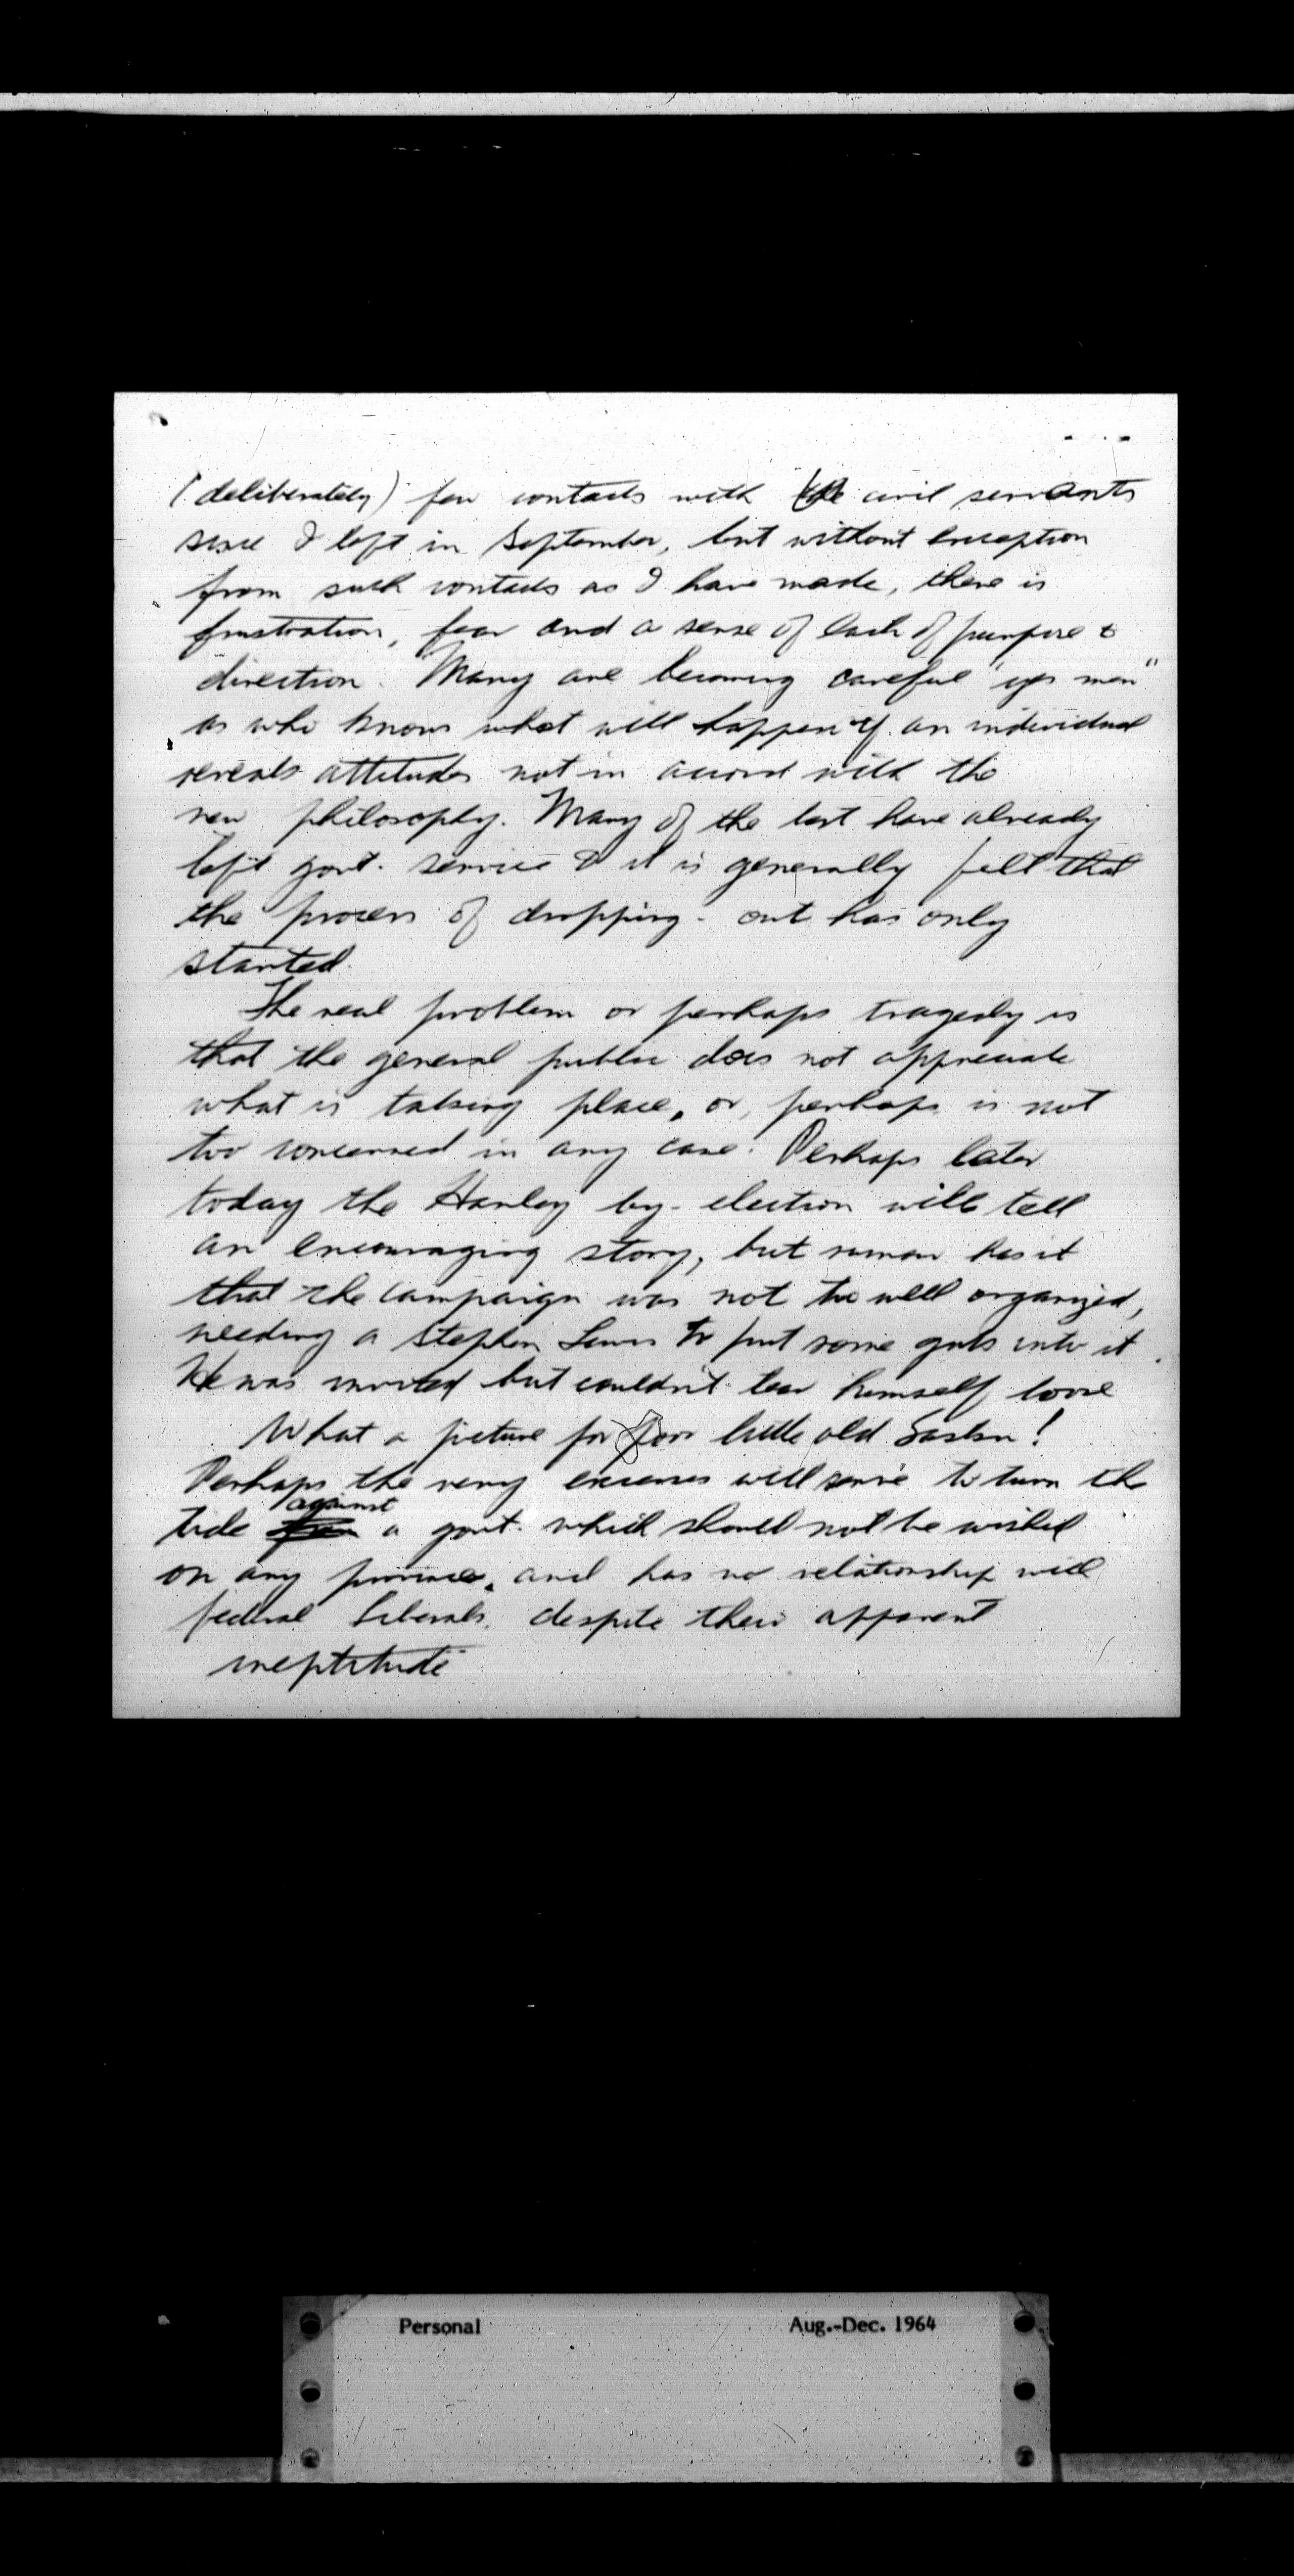 (deliberately) few contacts with the civil servants
since I left in September, but without exception
from such contacts as I have made, there is
frustration, fear and a sense of lack of purpose &
direction. Many are becoming careful "yes men"
as who knows what will happen if an individual
reveals attitudes not in accord with the
new philosophy. Many of the best have already
left govt. service & it is generally felt that
the process of dropping-out has only
started.
The real problem or perhaps tragedy is
that the general public does not appreciate
what is taking place, or, perhaps is not
too concerned in any case. Perhaps later
today the Hanley by-election will tell
an encouraging story, but rumor has it
that the campaign was not too well organized,
needing a Stephen Lewis to put some guts into it.
He was invited but couldn't tear himself loose
What a picture for poor little old Saskn!
Perhaps the very excesses will serve to turn the
tide against a govt. which should not be wished
on any province, and has no relationship with
federal Liberals, despite their apparent
ineptitude
Personal Aug.-Dec. 1964